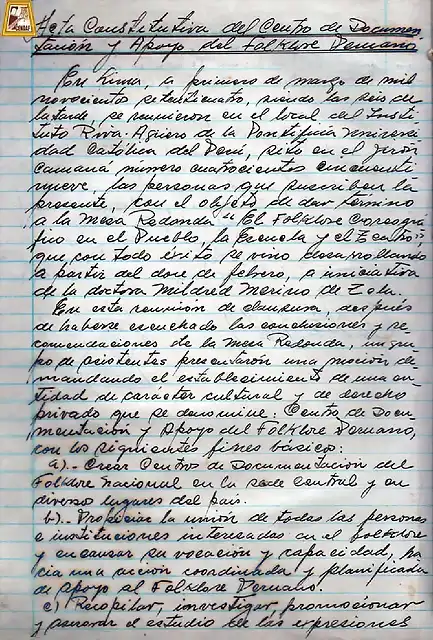 Acta Constitutiva del Centro de Documen
tación y Apoyo del Folklore Peruano
En Lima, a primero de marzo de mil
novecientos setenticuatro, siendo las seis de
la tarde, se reunieron en el local del Insti-
tuto Riva-Agüero de la Pontificia Universi
dad Católica del Perú, sito en el jirón
Camaná número cuatrocientos cincuenti
nueve, las personas que suscriben la
presente, con el objeto de dar término
a la Mesa Redonda "El Folklore Coreográ
fico en el Pueblo, la Escuela y el Teatro",
que con todo éxito se vino desarrollando
a partir del doce de febrero, a iniciativa
de la doctora Mildred Merino de Zela.
En esta reunión de clausura, después
de haberse escuchado las conclusiones y re-
comendaciones de la Mesa Redonda, un gru
po de asistentes presentaron una moción de-
mandando el establecimiento de una en-
tidad de carácter cultural y de derecho
privado que se denomine: Centro de Docu-
mentación y Apoyo del Folklore Peruano,
con los siguientes fines básicos:
a).- Crear Centros de Documentación del
Folklore Nacional en la sede central y en
diversos lugares del país.
b).- Propiciar la unión de todas las personas
e instituciones interesadas en el folklore
y encausar su vocación y capacidad, ha
cia una acción coordinada y planificada
de apoyo al Folklore Peruano.
c) Recopilar, investigar, promocionar
y asesorar el estudio de las expresiones